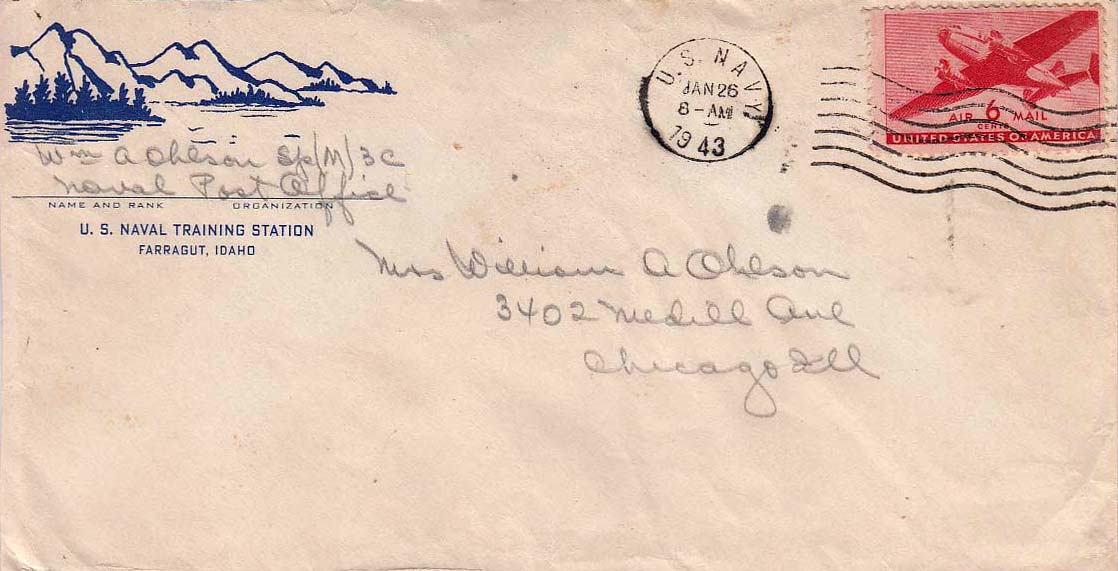 Wm A Ohlson Sp/M/3C
Naval Post Office
NAME AND RANK ORGANIZATION
U. S. NAVAL TRAINING STATION
FARRAGUT, IDAHO
U. S. NAVY
JAN 26
8-AM
1943
AIR 6 MAIL
CENTS
UNITED STATES OF AMERICA
Mrs William A Ohlson
3402 Medill Ave
Chicago Ill